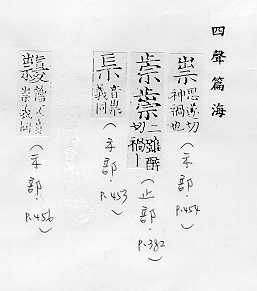 四聲篇海
祟 思遂切
神禍也
(示部. P.454)
二雖醉
切禍丨
(止部. P.382)
音祟
義同
(示部. P.453)
祟義同
(示部. P.456)